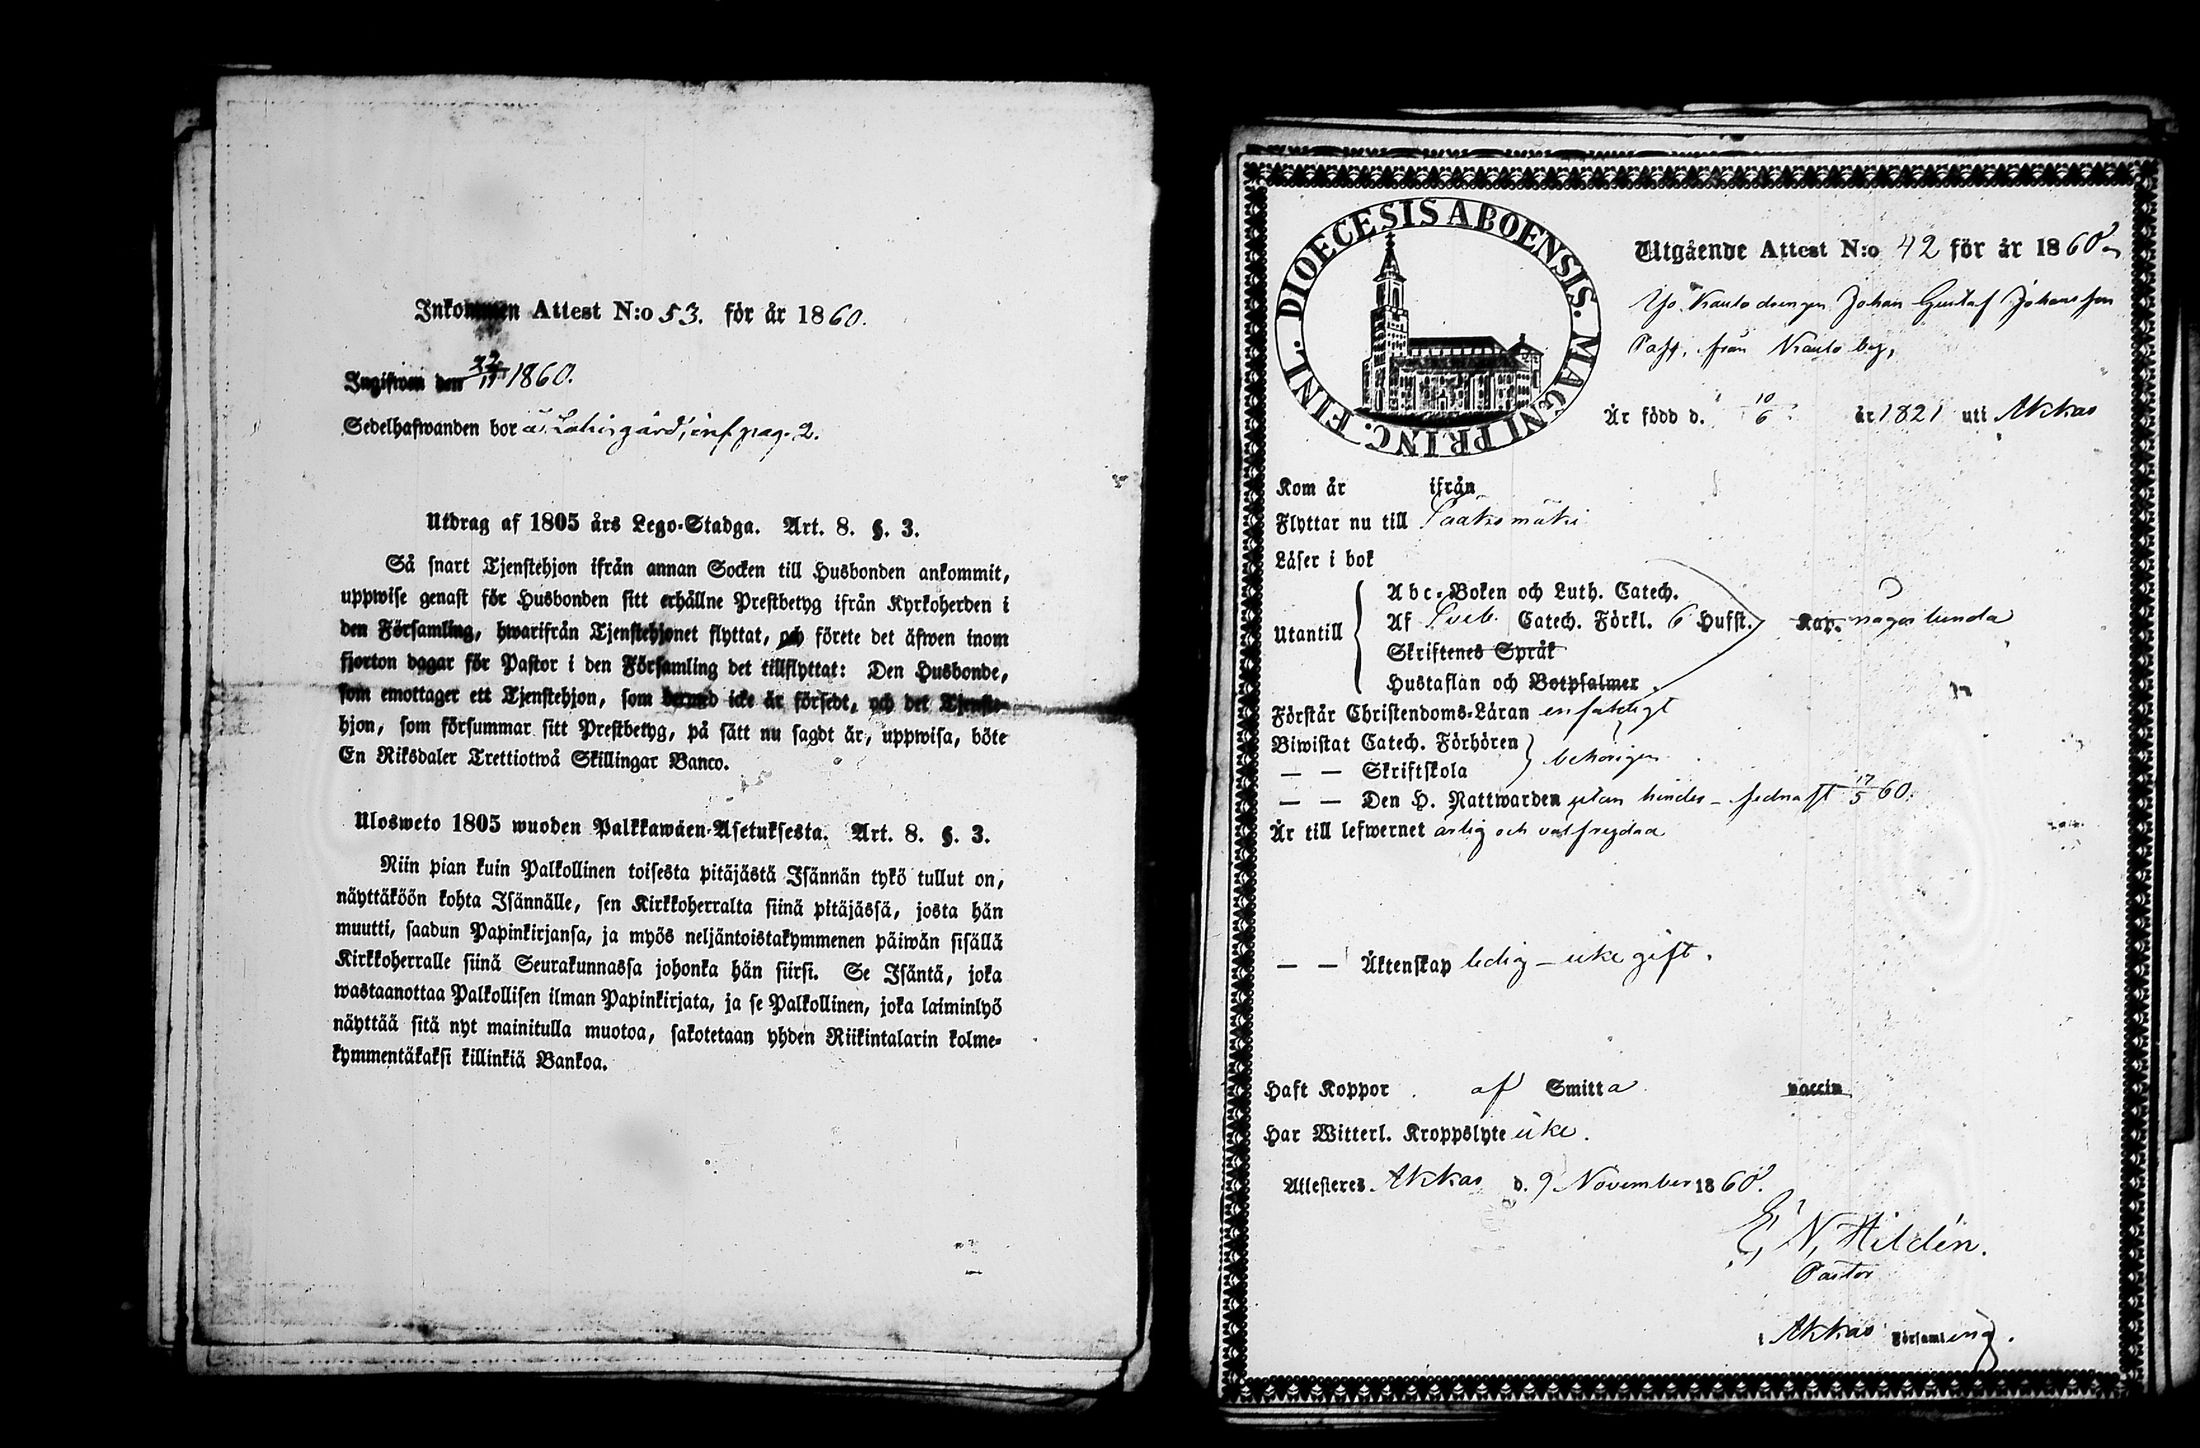 Inkommen Attest N:o 53. för år 1860.
Ingifwen den 22/11 1860.
Sedelhafwanden bor å Lahisgård, inf. pag. 2.
Utdrag af 1805 års Lego-Stadga. Art. 8. §. 3.
Så snart Tjenstehjon ifrån annan Socken till Husbonden ankommit,
uppwise genast för Husbonden sitt erhållne Prestbetyg ifrån Kyrkoherden i
den Församling, hwarifrån Tjenstehjonet flyttat, och förete det äfwen inom
fjorton dagar för Pastor i den Församling det tillflyttat: Den Husbonde,
som emottager ett Tjenstehjon, som dermed icke är försedt, och det Tjenste-
hjon, som försummar sitt Prestbetyg, på sätt nu sagdt är, uppwisa, böte
En Riksdaler Trettiotwå Skillingar Banco.
Ulosweto 1805 wuoden Palkkawäen-Asetuksesta. Art. 8. §. 3.
Niin pian kuin Palkollinen toisesta pitäjästä Isännän tykö tullut on,
näyttäköön kohta Isännälle, sen Kirkkoherralta siinä pitäjässä, josta hän
muutti, saadun Papinkirjansa, ja myös neljäntoistakymmenen päiwän sisällä
Kirkkoherralle siinä Seurakunnassa johonka hän siirsi. Se Isäntä, joka
wastaanottaa Palkollisen ilman Papinkirjata, ja se Palkollinen, joka laiminlyö
näyttää sitä nyt mainitulla muotoa, sakotetaan yhden Riikintalarin kolme-
kymmentäkaksi killinkiä Bankoa.
DIOECESIS ABOENSIS. MAGNI PRINC. FINL.
Utgående Attest N:o 42 för år 1860
drengen Johan Gustaf Johansson
från Nauto by,
Är född d. 10/6 år 1821 uti Akkas
Kom år ifrån
Flyttar nu till Sääksmäki
Läser i bok
Utantill
Abc-Boken och Luth. Catech.
Af Sveb. Catech. Förkl. 6 Hufst. Kap. någorlunda
Skriftenes Språk
Hustaflan och Botpsalmer
Förstår Christendoms-Läran enfaldigt
Biwistat Catech. Förhören
— — Skriftskola behörigen
— — Den H. Nattwarden utan hinder – sednast 17/5 60.
Är till lefwernet ärlig och välfrejdad
— — Äktenskap ledig – icke gift.
Haft Koppor af Smitta vaccin
Har Witterl. Kroppslyte icke.
Attesteres Akkas d. 9 November 1860.
E. N. Hildén.
Pastor
i Akkas Församling.